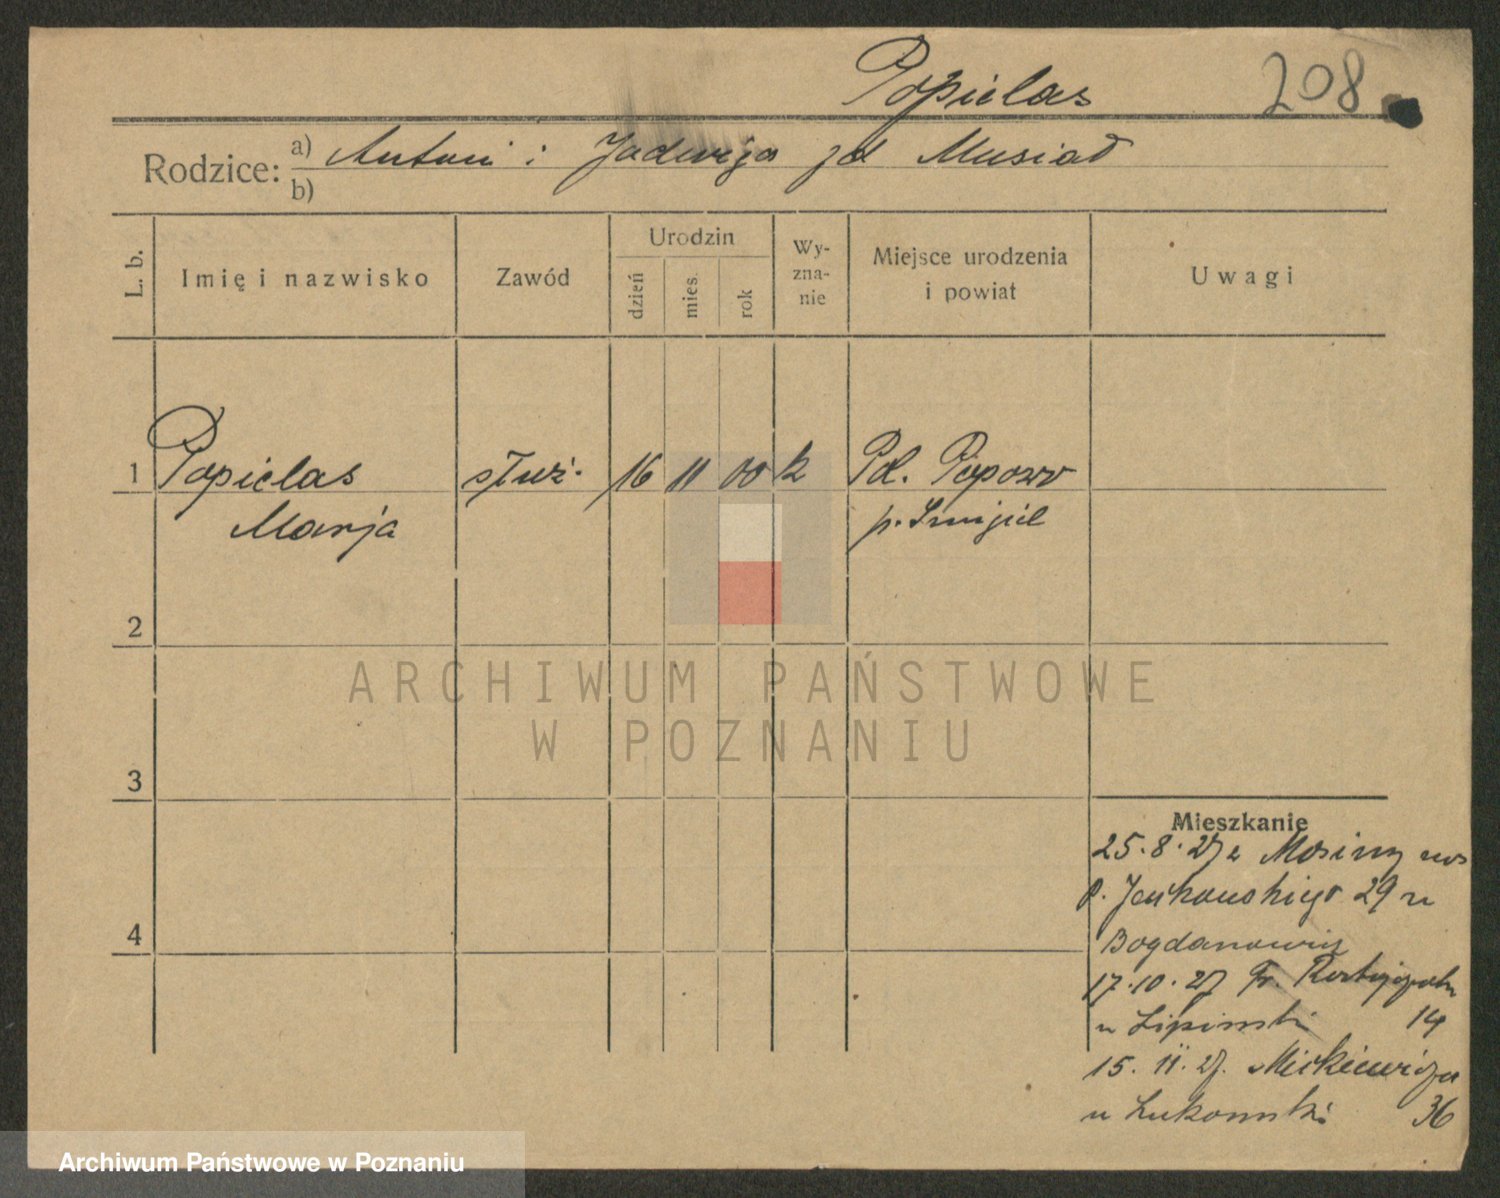 Popielas 208
Rodzice: a) Antoni i Jadwiga zd Musiał
b)
L. b. Imię i nazwisko Zawód Urodzin dzień mies. rok Wy-zna-nie Miejsce urodzenia i powiat Uwagi
1 Popielas służ. 16 11 00 k Pd. Popowo
Marja p. Śmigiel
2
3
4
Mieszkanie
25.8.27 z Mosiny
P. 29 u
Bogdanowicz
17.10.27 Fr. Ratajczaka
u Lipinski 14
15.11.27. Mickiewicza
u Lukomski 36
ARCHIWUM PAŃSTWOWE
W POZNANIU
Archiwum Państwowe w Poznaniu